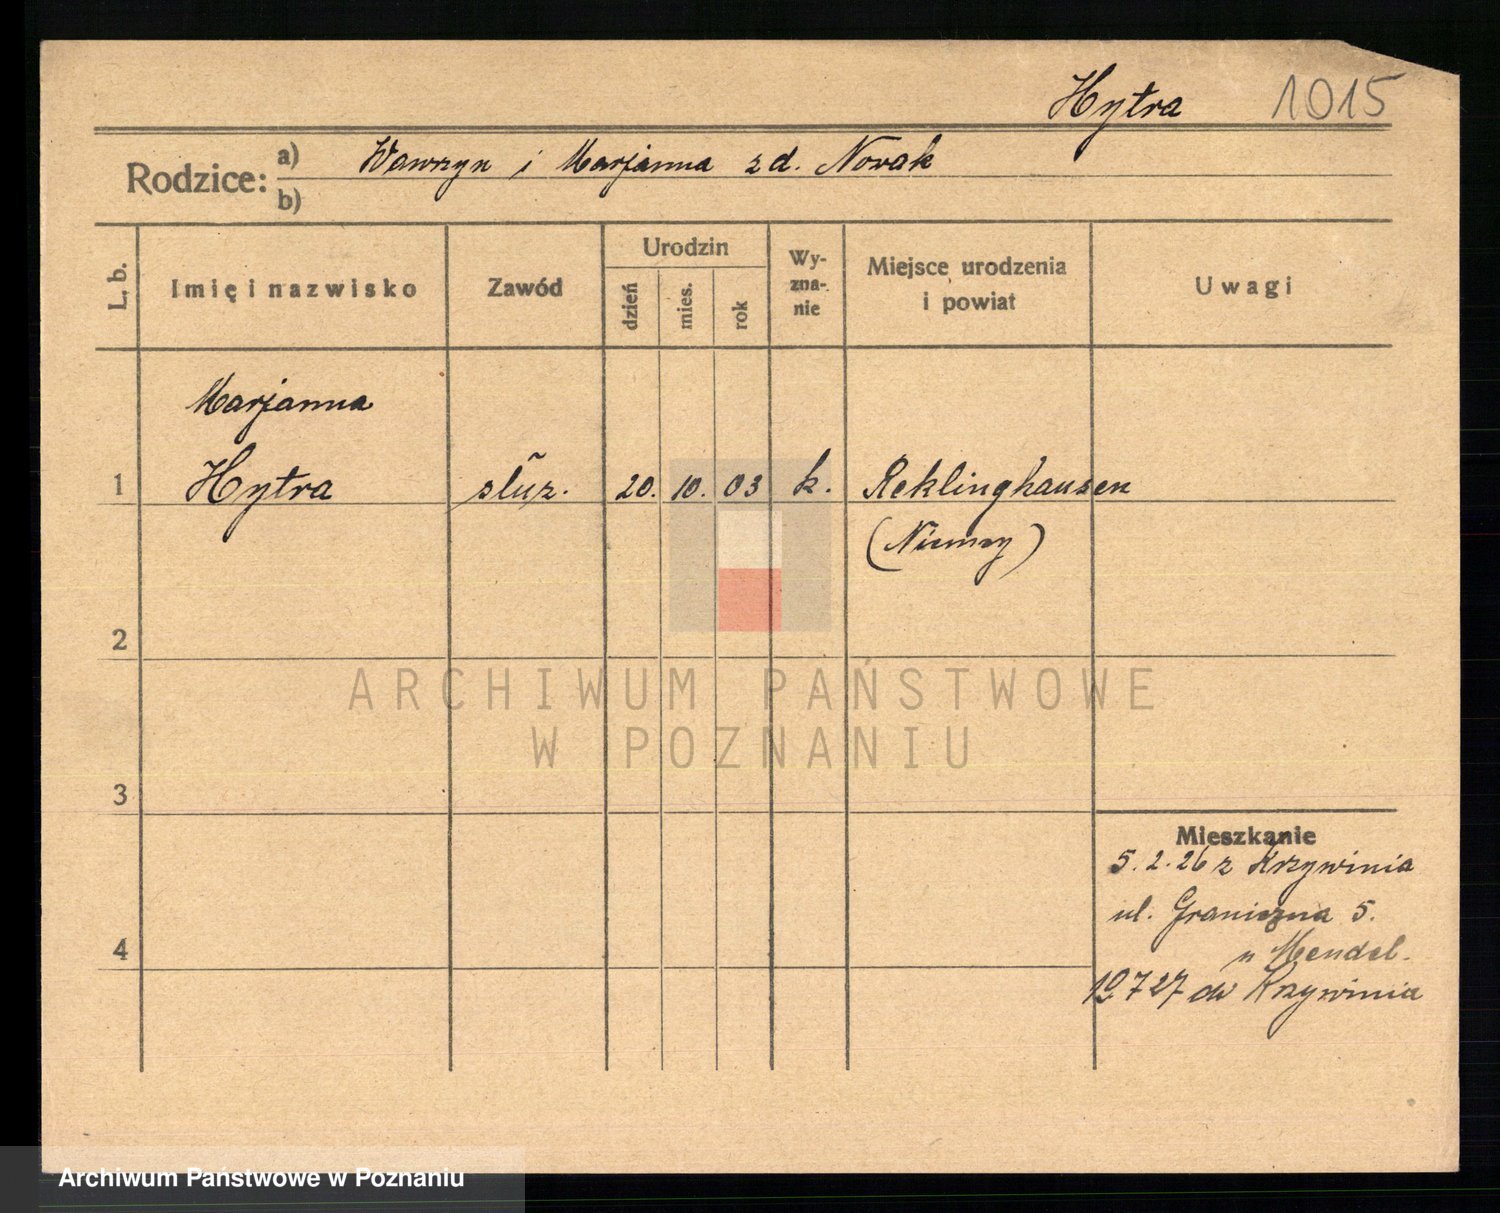 Hytra 1015
Rodzice: a) Wawrzyn i Marjanna z d. Nowak
b)
L. b.
Imię i nazwisko
Zawód
Urodzin
dzień
mies.
rok
Wy-
zna-
nie
Miejsce urodzenia
i powiat
Uwagi
Marjanna
1 Hytra służ. 20. 10. 03 k. Reklinghausen
(Niemcy)
2
ARCHIWUM PAŃSTWOWE
W POZNANIU
3
Mieszkanie
5. 2. 26 z Krzywinia
ul. Graniczna 5.
4
u Mendel.
7 27 do Krzywinia
Archiwum Państwowe w Poznaniu